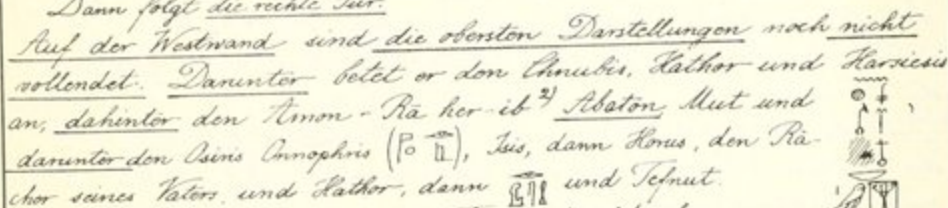 Dann folgt die rechte Tür.
Auf der Westwand sind die obersten Darstellungen noch nicht
vollendet. Darunter betet er den Chnubis, Hathor und Harsiesis
an, dahinter den Amon-Rā her-ib 2) Abaton, Mut und
darunter den Osiris Onnophris ( ), Isis, dann Horus, den Rä-
cher seines Vaters, und Hathor, dann und Tefnut.